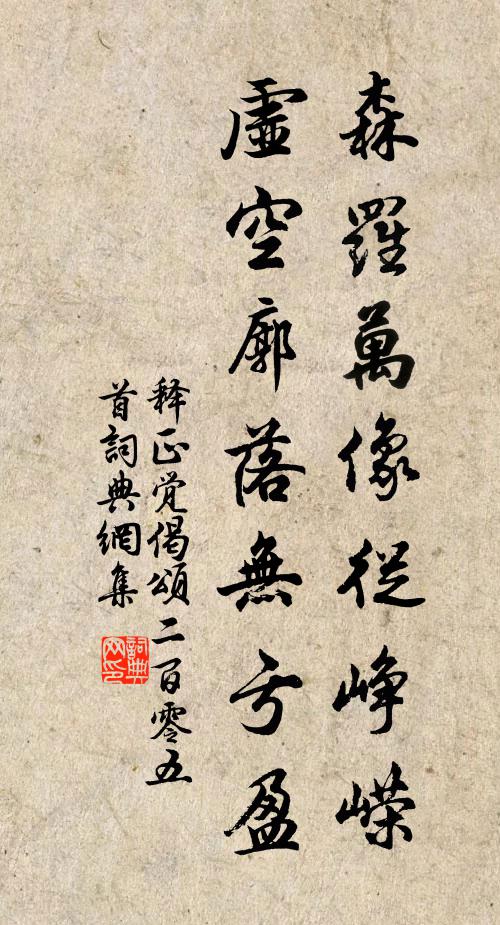 森羅萬像從崢嶸
虛空廓落無亏盈
释正覚偈頌二百零五
首詞典網集
詞典网印